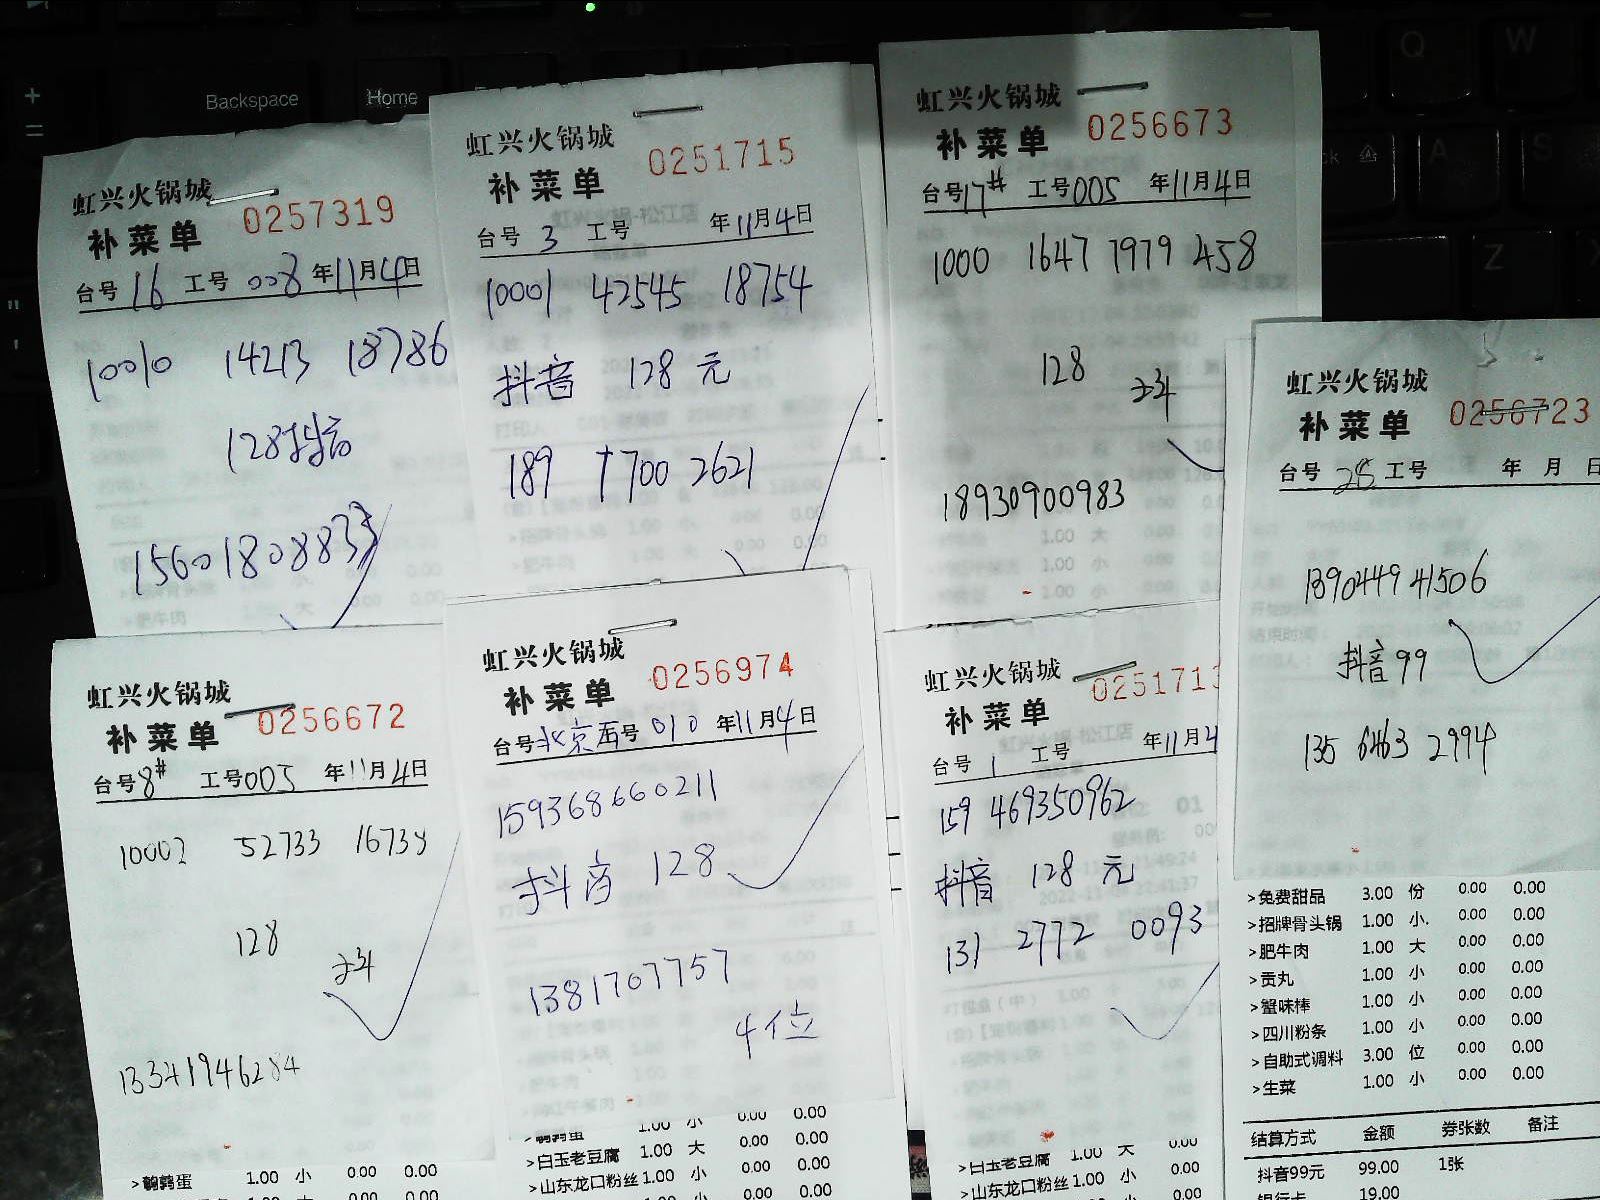 Backspace
Home
Q
W
A
S
Z
X
虹兴火锅城
补菜单 0257319
台号 16 工号 008 年11月4日
10010 14213 18786
128抖音
15601808833
虹兴火锅城
补菜单 0251715
台号 3 工号 年11月4日
10001 42545 18754
抖音 128元
189 1700 2621
虹兴火锅城
补菜单 0256673
台号17# 工号005 年11月4日
1000 1647 7979 458
128
18930900983
虹兴火锅城
补菜单 0256723
台号 28 工号 年 月 日
1390449 41506
抖音99
135 6463 2994
>免费甜品 3.00 份 0.00 0.00
>招牌骨头锅 1.00 小 0.00 0.00
>肥牛肉 1.00 大 0.00 0.00
>贡丸 1.00 小 0.00 0.00
>蟹味棒 1.00 小 0.00 0.00
>四川粉条 1.00 小 0.00 0.00
>自助式调料 3.00 位 0.00 0.00
>生菜 1.00 小 0.00 0.00
结算方式 金额 券张数 备注
抖音99元 99.00 1张
银行卡 19.00
虹兴火锅城
补菜单 0256672
台号8# 工号005 年11月4日
10002 52733 16738
128
13341946284
>鹌鹑蛋 1.00 小 0.00 0.00
虹兴火锅城
补菜单 0256974
台号北京西号 010 年11月4日
159368660211
抖音 128
1381707757
4位
>鹌鹑蛋 1.00 小 0.00 0.00
>白玉老豆腐 1.00 大 0.00 0.00
>山东龙口粉丝 1.00 小 0.00 0.00
虹兴火锅城
补菜单 0251713
台号 1 工号 年11月4
159 469350962
抖音 128元
131 2772 0093
>白玉老豆腐 1.00 大 0.00
>山东龙口粉丝 1.00 小 0.00